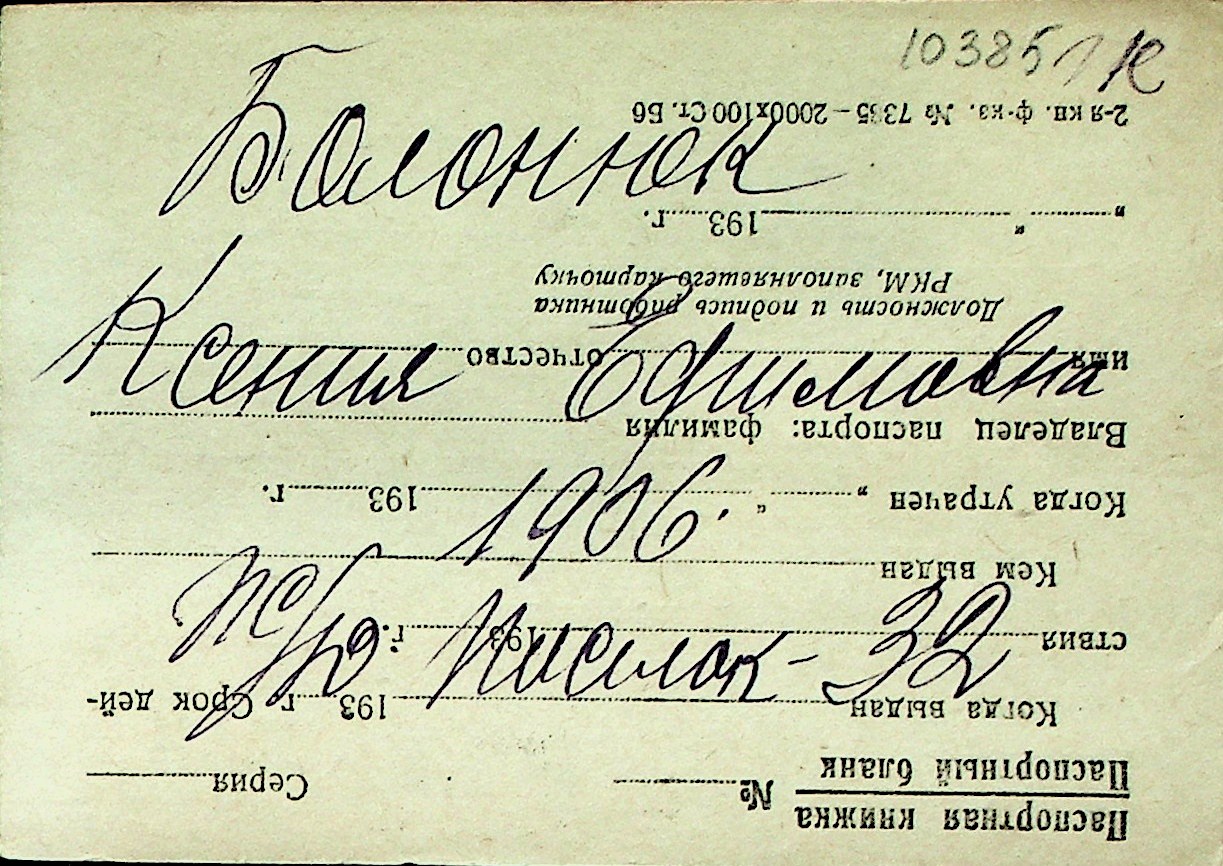 10385
Болонюк
Ксения Ефимовна
1906.
32
Паспортная книжка
Паспортный бланк № Серия
Когда выдан 193 г Срок дей-
ствия 193 г.
Кем выдан
Когда утрачен „ “ 193 г.
Владелец паспорта: фамилия
имя отчество
Должность и подпись работника
РКМ, заполнявшего карточку
„ “ 193 г.
2-я кв. ф-ка. № 7385—2000х100 Ст. Бб